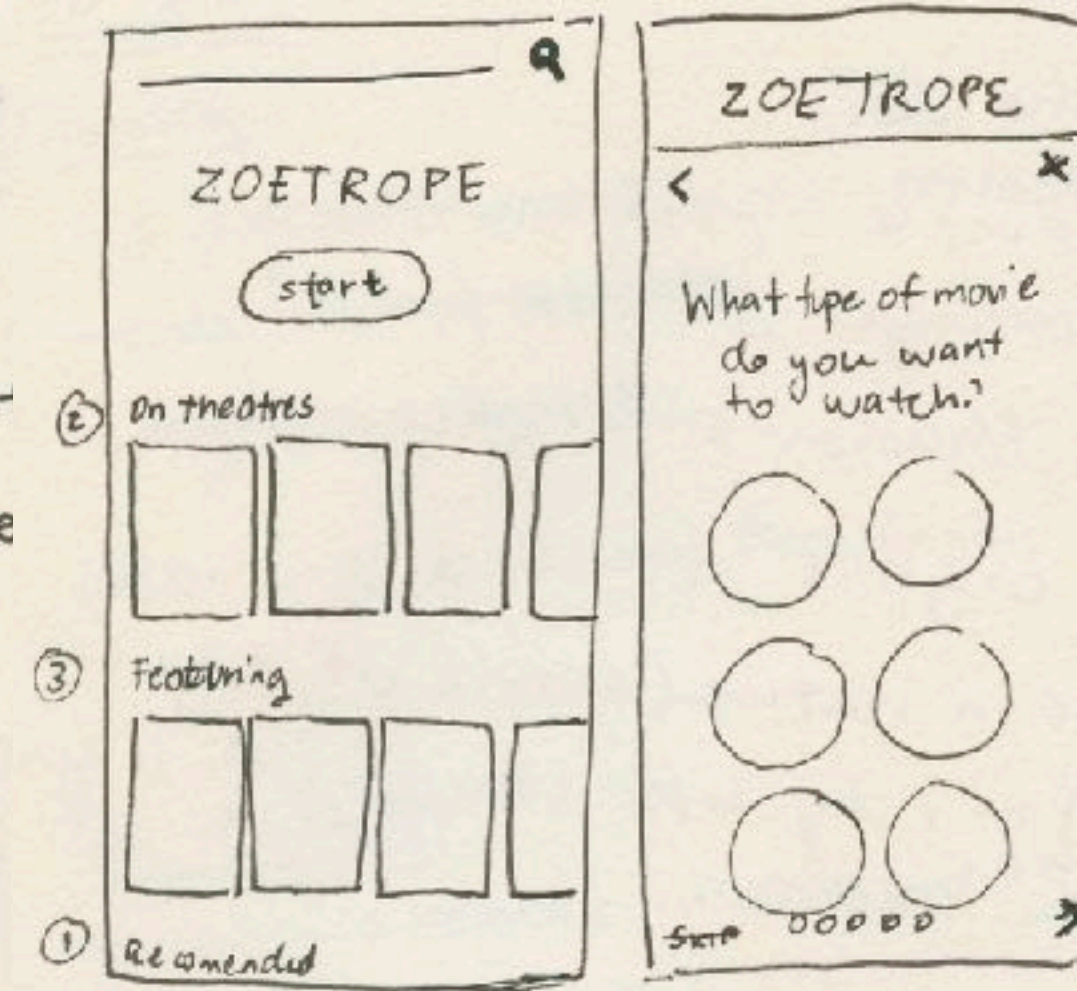 ZOETROPE
start
2 On theatres
3 Featuring
1 Recomended
ZOETROPE
< ×
What type of movie
do you want
to watch?
SKIP >